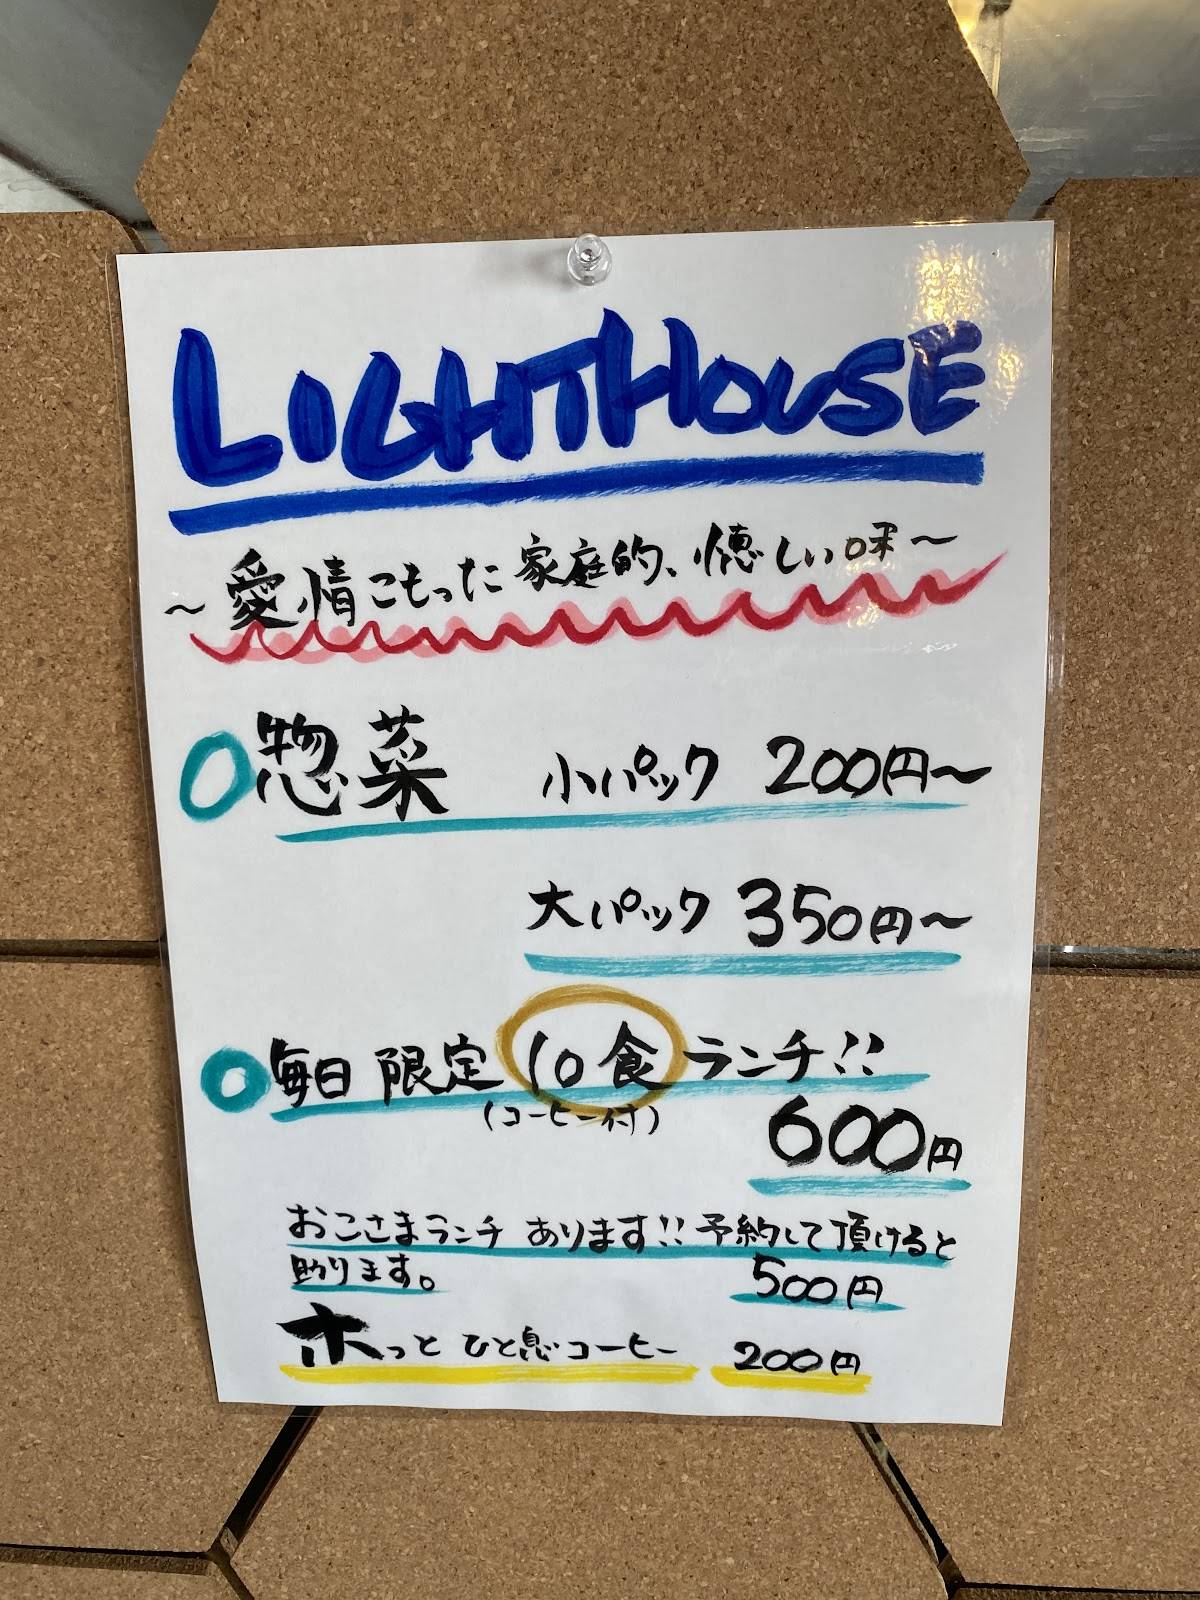 LIGHTHOUSE
～愛情こもった家庭的、懐しい味～
○惣菜 小パック 200円～
大パック 350円～
○毎日 限定 10食 ランチ!!
(コーヒー付) 600円
おこさまランチ あります!! 予約して頂けると
助ります。 500円
ホっと ひと息コーヒー 200円